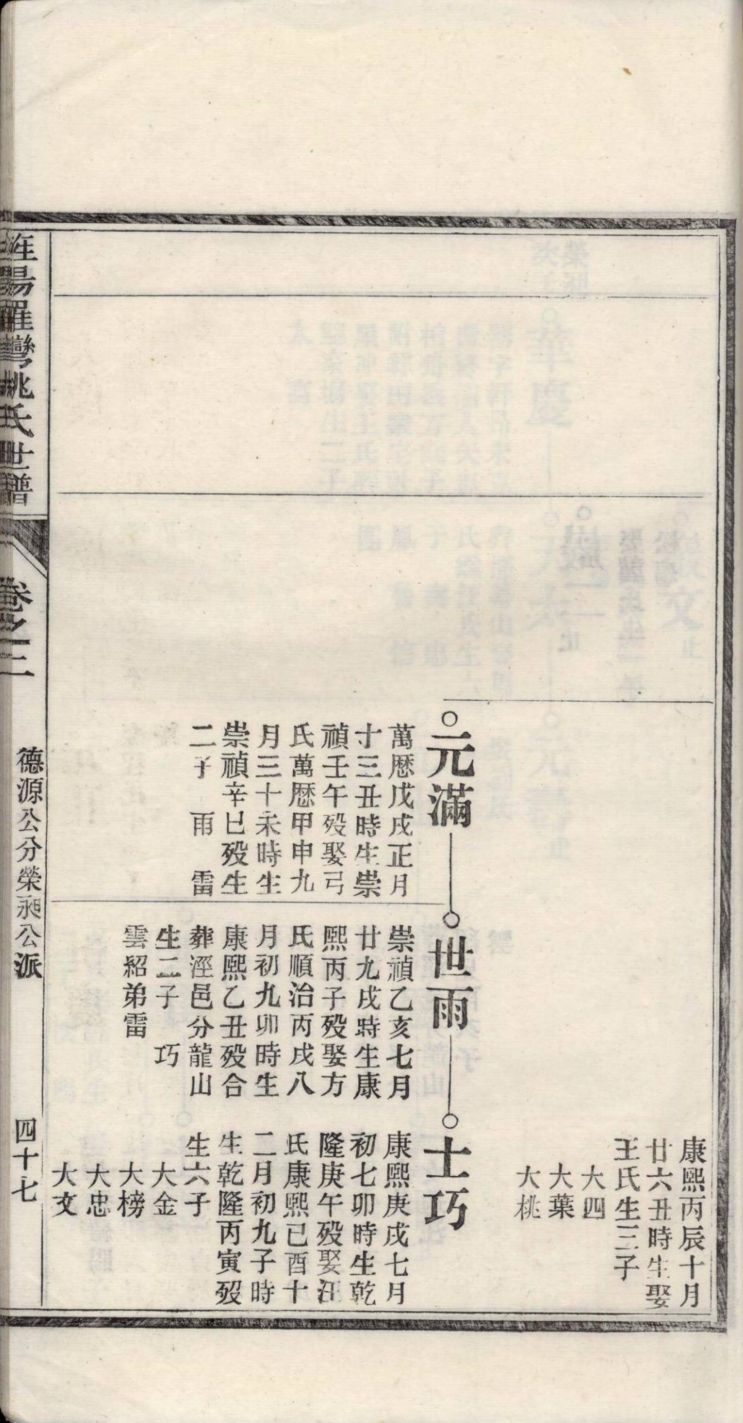 康熙丙辰十月
廿六丑時生娶
王氏生三子
大四
大葉
大桃
元滿
萬歷戊戌正月
十三丑時生崇
禎壬午歿娶弓
氏萬歷甲申九
月三十未時生
崇禎辛巳歿生
二子 雨 雷
世雨
崇禎乙亥七月
廿九戌時生康
熙丙子歿娶方
氏順治丙戌八
月初九卯時生
康熙乙丑歿合
葬涇邑分龍山
生二子 巧
雲紹弟雷
士巧
康熙庚戌七月
初七卯時生乾
隆庚午歿娶汪
氏康熙己酉十
二月初九子時
生乾隆丙寅歿
生六子
大金
大榜
大忠
大文
旌陽羅彎姚氏世譜
卷之三
德源公分榮昶公派
四十七